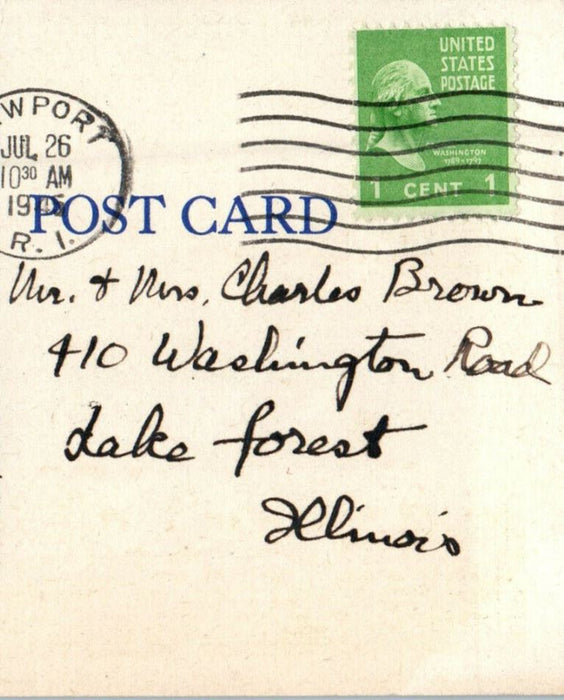 UNITED
STATES
POSTAGE
WASHINGTON
1789-1797
1 CENT 1
WPORT
JUL 26
10³⁰ AM
R. I.
POST CARD
Mr. & Mrs. Charles Brown
410 Washington Road
Lake Forest
Illinois